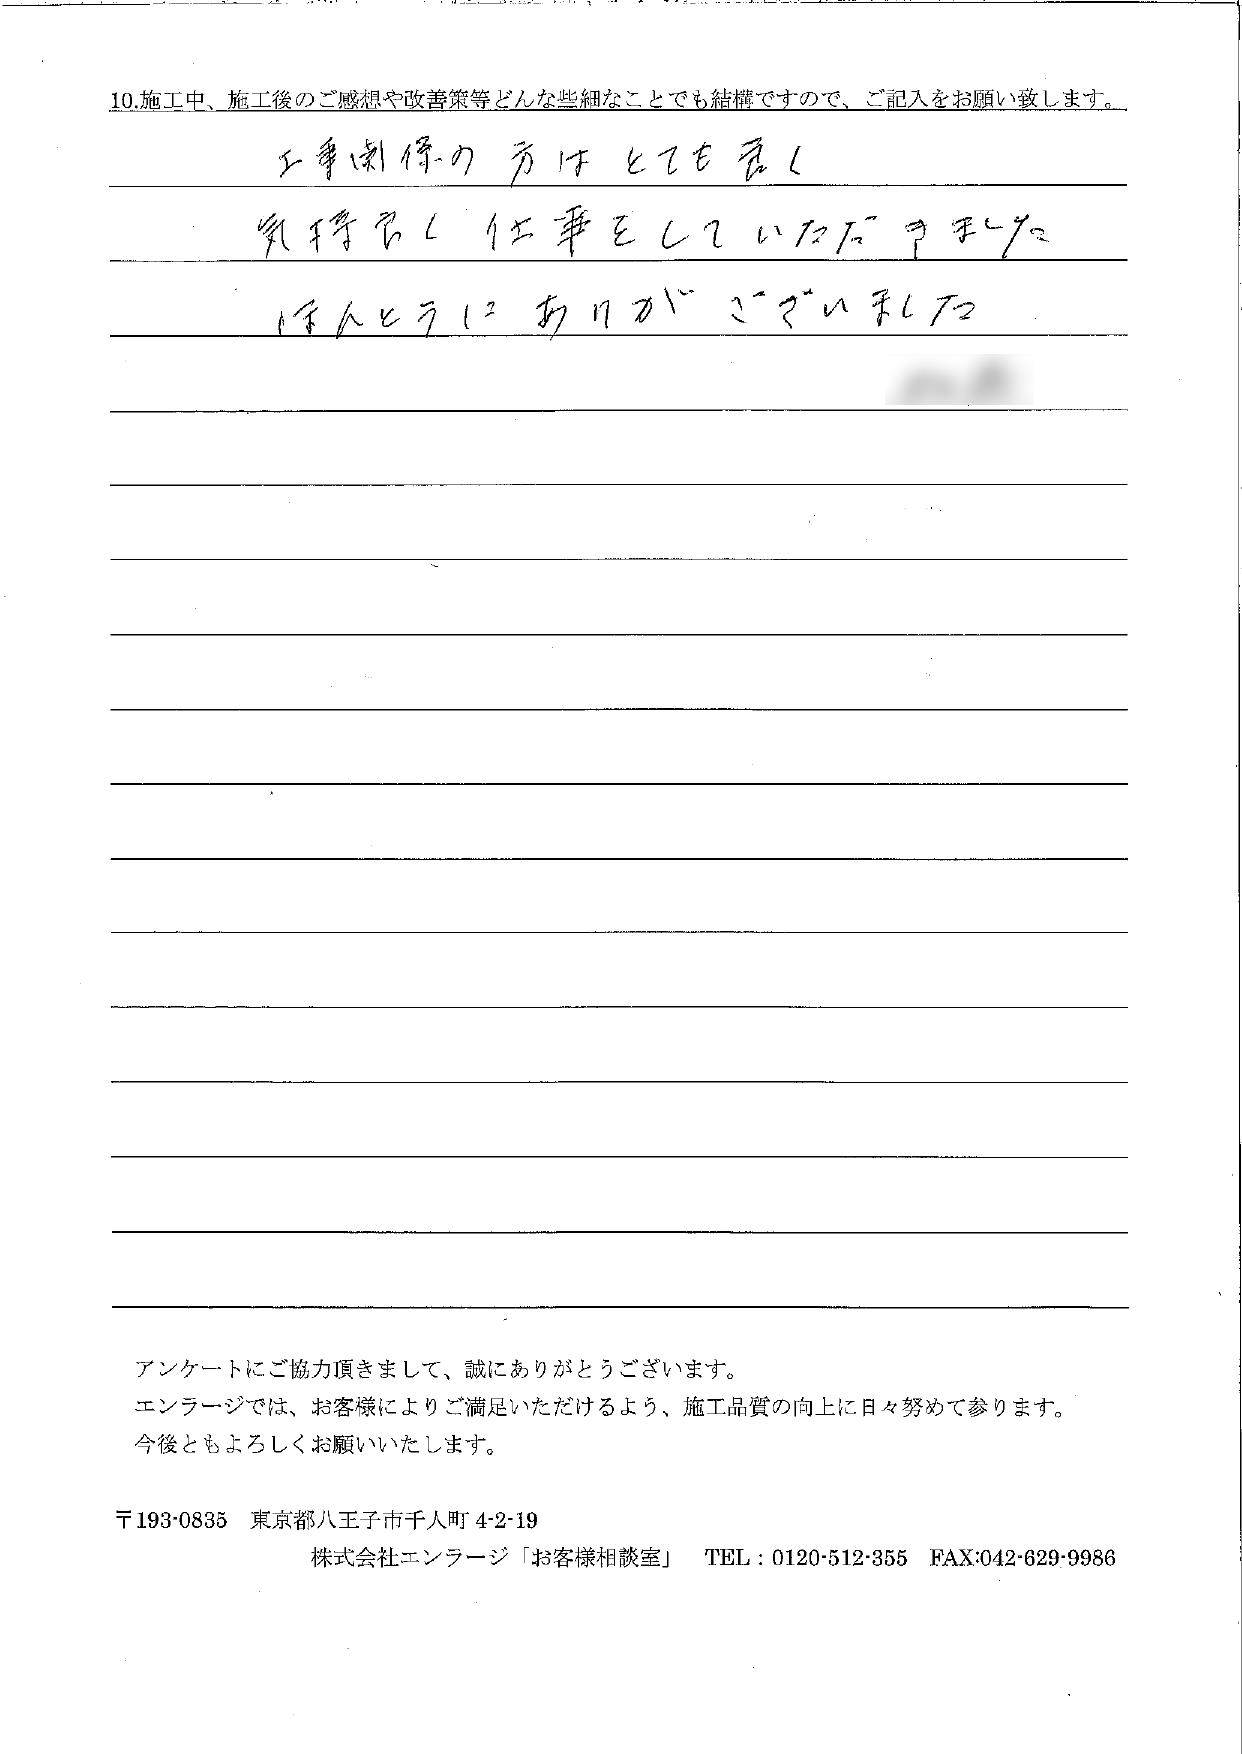 10.施工中、施工後のご感想や改善策等どんな些細なことでも結構ですので、ご記入をお願い致します。
工事関係の方はとても良く
気持良く仕事をしていただきました
ほんとうにありがございました
アンケートにご協力頂きまして、誠にありがとうございます。
エンラージでは、お客様によりご満足いただけるよう、施工品質の向上に日々努めて参ります。
今後ともよろしくお願いいたします。
〒193-0835　東京都八王子市千人町 4-2-19
株式会社エンラージ「お客様相談室」　TEL：0120-512-355　FAX:042-629-9986